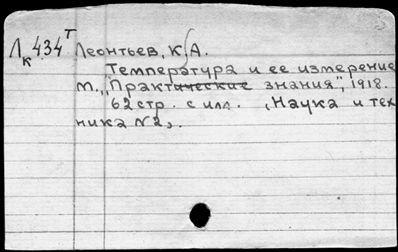 Лк 434т Леонтьев, К. А.
Температура и ее измерение
М., "Практические знания", 1918.
62 стр. с илл. (Наука и тех
ника № 2).